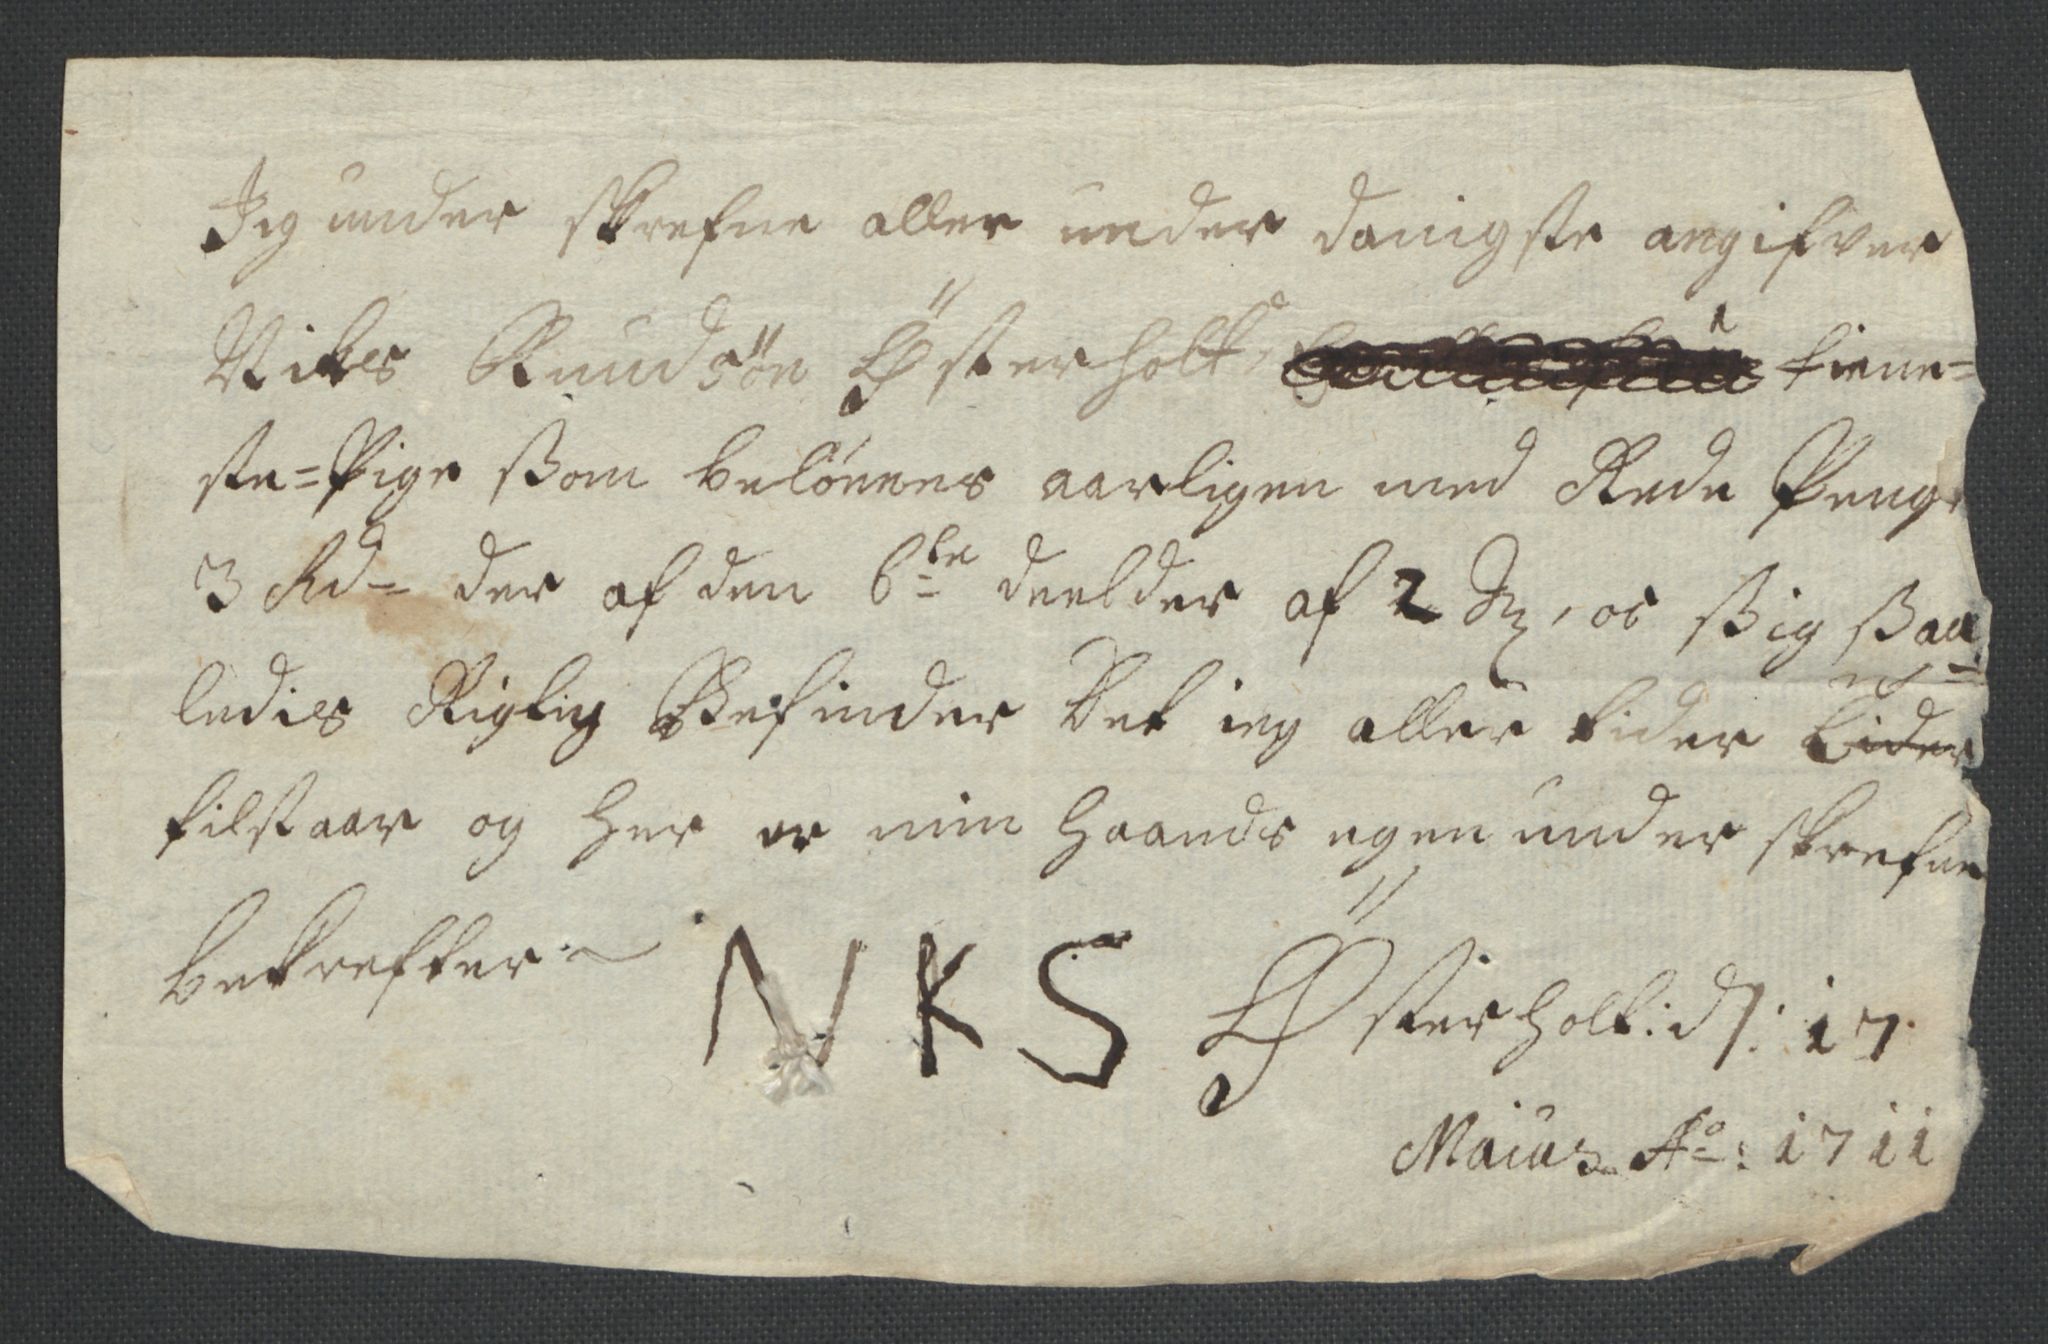 Jeg under skrefne aller under danigste angifver
Niels Knudsön Østerholt 1 tiene=
ste=Pige ßom belönnes aarligen med Rede Penge
3 Rd der af den 6te deel der af 2 mz, os ßig ßaa=
ledies Rigtig Befinder Det ieg aller tider
tilstaar og her er min Haands egen under skrefne
bekrefter NKS Østerholt: d/: 17
Maius Ao: 1711